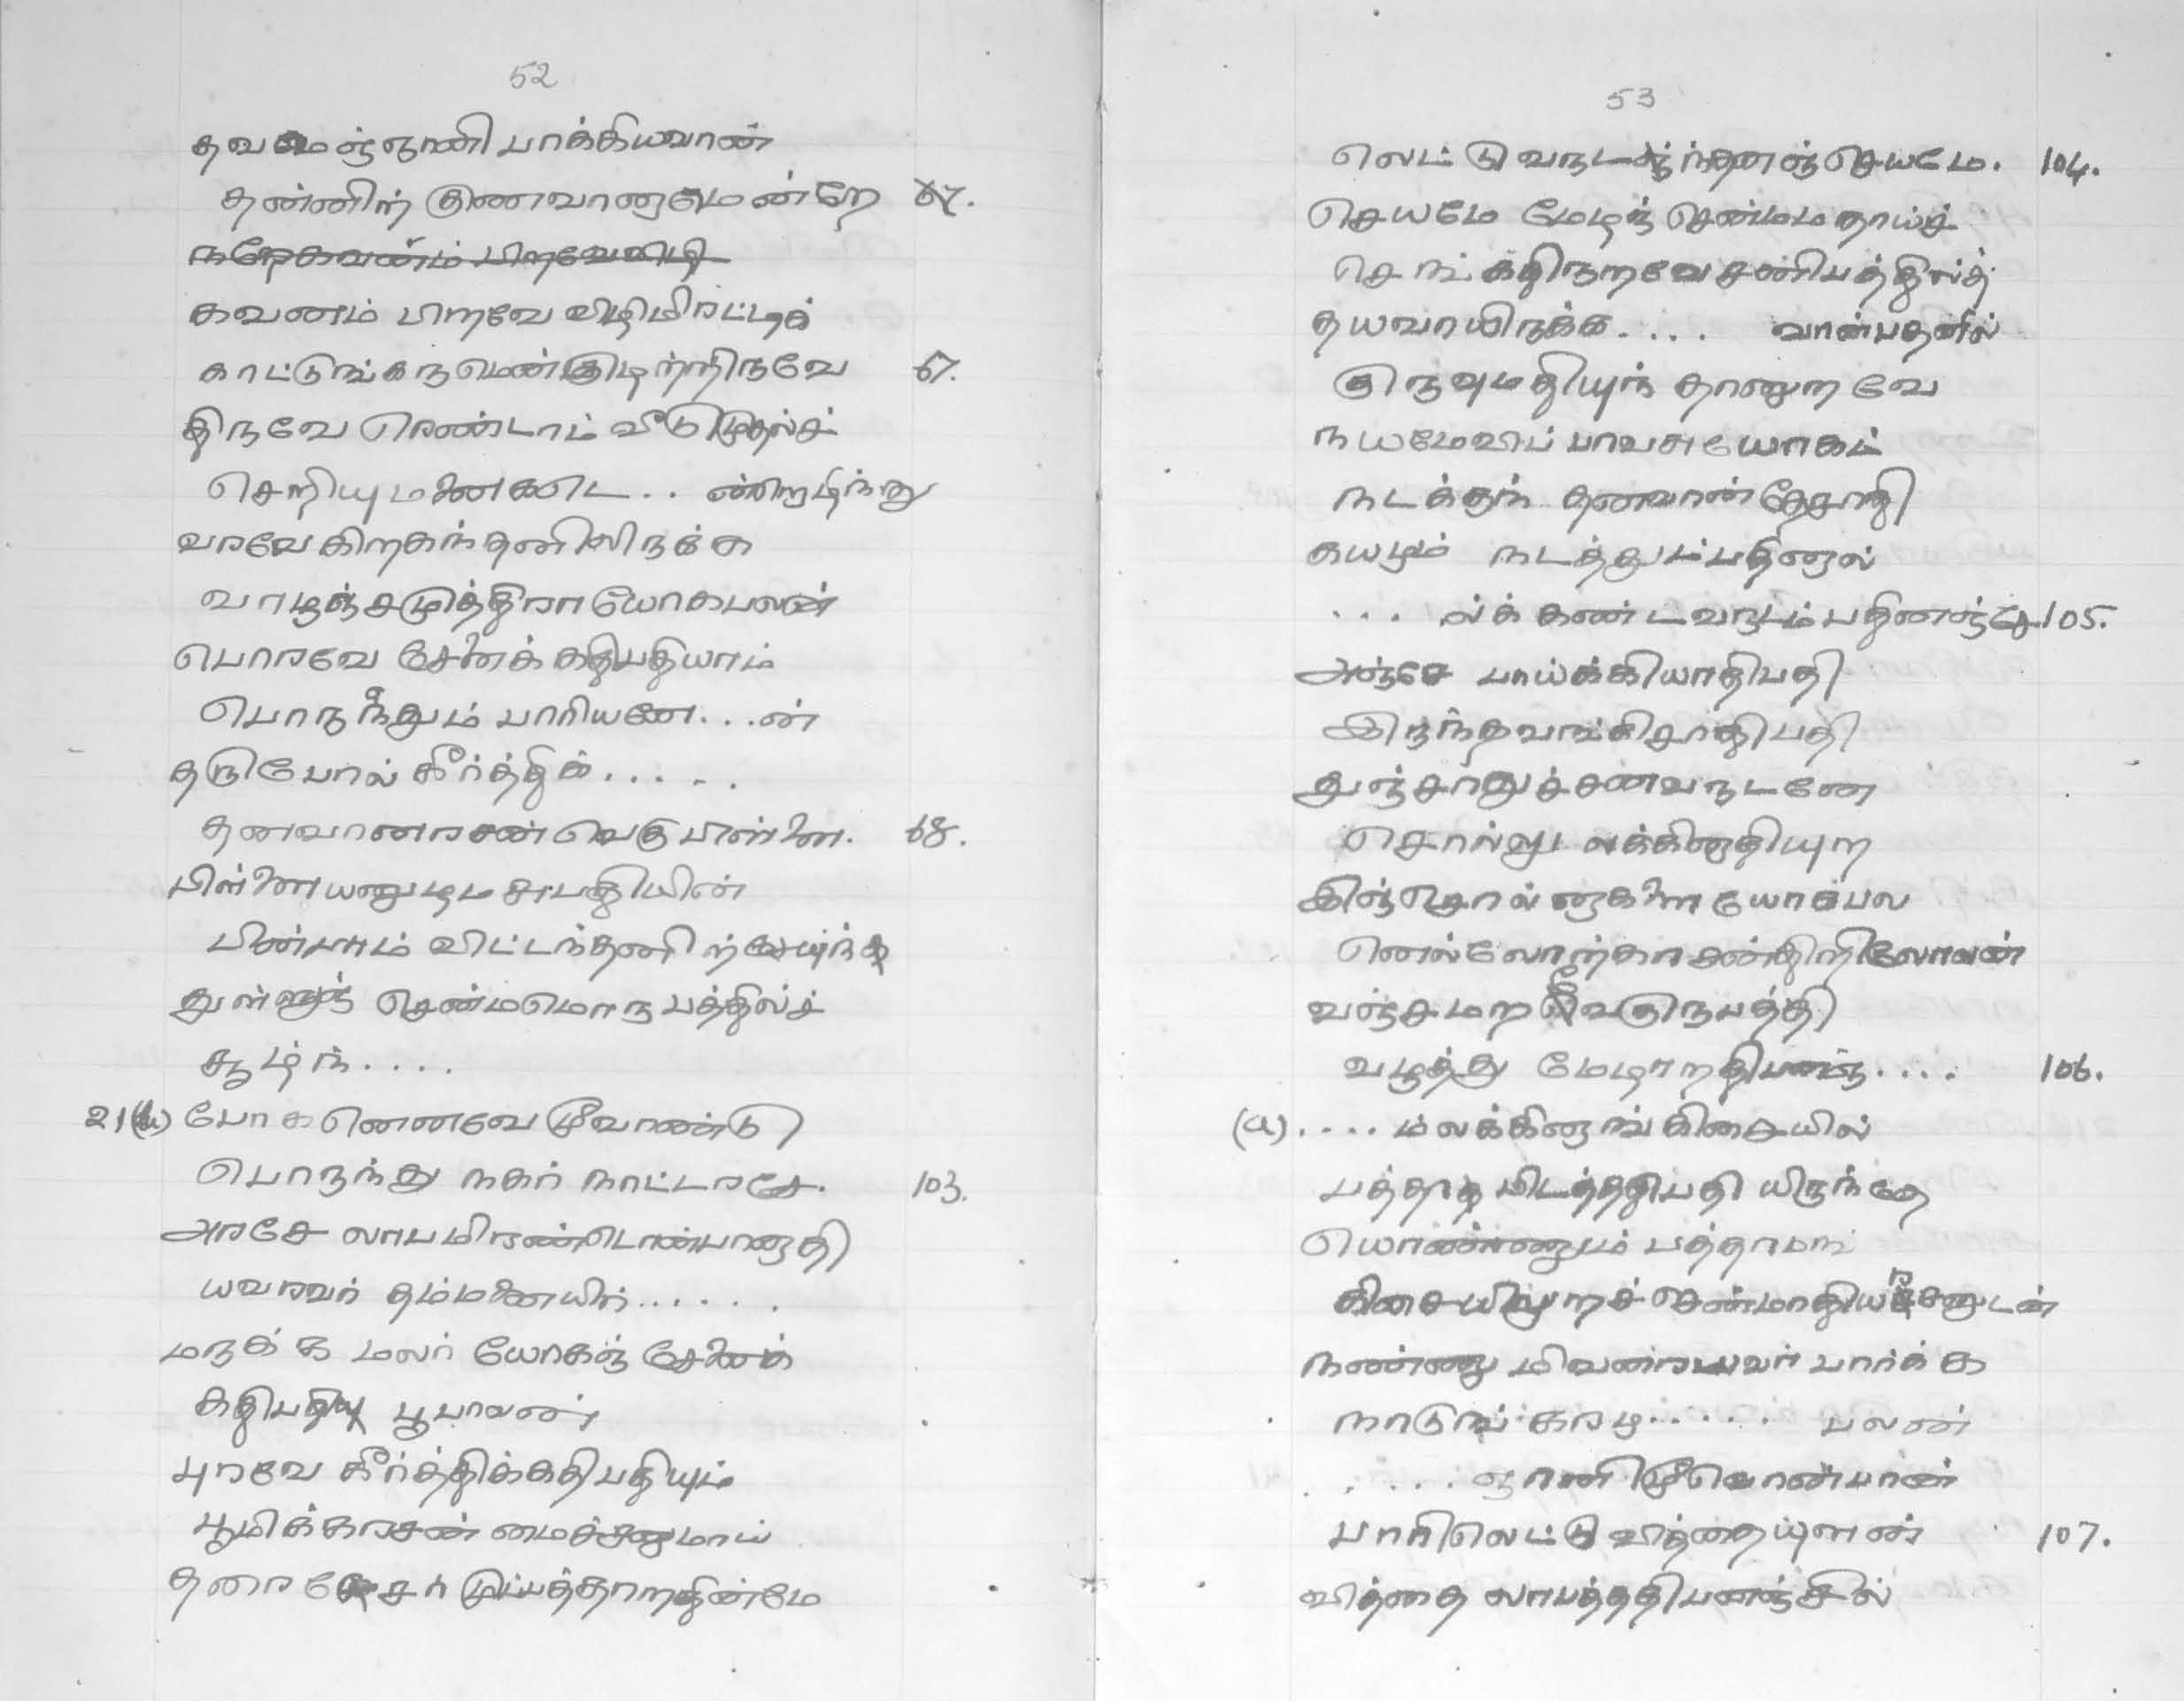 52
தவமெஞ்ஞானி பாக்கியவான்
தன்னிற் குணவானுமென்றே 67.
கவனம் பிறவே விழிமிரட்டிக்
காட்டுங்கருமென்குழற்றிருவே 67.
திருவே ரெண்டாம் வீடுமுதல்ச்
செறியுமனைவிட . . ன்றெழிந்து
வரவே கிறகந்தனிலிருக்க
வாழுஞ்சமுத்திரா யோகபலன்
பொரவே சேனைக் கதிபதியாம்
பொருந்தும் பாரியனே . . . ன்
தருபோல் கீர்த்திக் . . . . .
தனவானரசன் வெகு பிள்ளை. 68.
பிள்ளையனுடிம சுபதியின்
பின்பாம் விட்டந்தனிற்சேயுந்
துள்ளுஞ் சென்மமொரு பத்தில்ச்
சூழ்ந் . . . .
21 போகனெனவே மூவாண்டு
பொருந்து நகர் நாட்டரசே. 103.
அரசே லாபமிரண்டொன்பானாதி
யவரவர் தம்மனையிற் . . . . . .
மருக்க மலர் யோகஞ் சேனைக்
கதிபதியு பூபாலன்
புரவே கீர்த்திக்கதிபதியும்
பூமிக்கரசன் மைச்சனுமாய்
தரை சேர் முப்பத்தாறதின்மே
53
லெட்டு வருடந்தனஞ் செயமே. 104.
செயமே மேழஞ் சென்மமதாய்ச்
செங்கதிருறவே சனிபத்தில்த்
தயவாயிருக்க . . . . வான்பதனில்
குருவுமதியுந் தானுறவே
நயமேவிப் பாவசுயோகம்
நடக்குந் தனவான் தேசாதி
கயமும் நடத்தும்பதினால்
. . . ல்க் கண்டவருடம்பதினஞ்சே 105.
அஞ்சே பாய்க்கியாதிபதி
இருந்தவங்கிசாதிபதி
துஞ்சாதுச்சனவருடனே
சொல்லு லக்கினாதியுற
இஞ்சொல்னாகளை யோகபல
னெல்லோற்கரசன்திரிலோலன்
வஞ்சமறவேகுருபத்தி
வழுத்து மேழாறதிபனஞ் . . . . 106.
(a) . . . . ம்லக்கினாங்கிசையில்
பத்தாமிடத்ததிபதி யிருந்தே
யொண்ணும் பத்தாமங்
கிசையிலுறச் சென்மாதியரனுடன்
நண்ணு மிவரையவர் பார்க்க
நாடுங் கரழ . . . . . பலன்
. . . . . ஞானி மூவொன்பான்
பாரிலெட்டு வித்தையுளன் 107.
வித்தை லாபத்ததிபனஞ்சில்